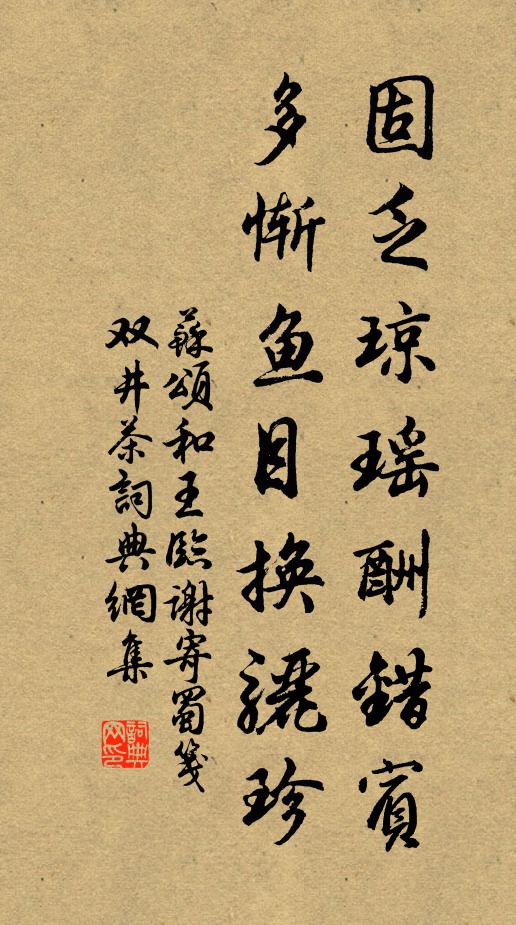 固乏琼瑶酬錯寶
多慚鱼目换驪珍
蘇頌和王臨謝寄蜀箋
双井茶詞典網集
詞典网印